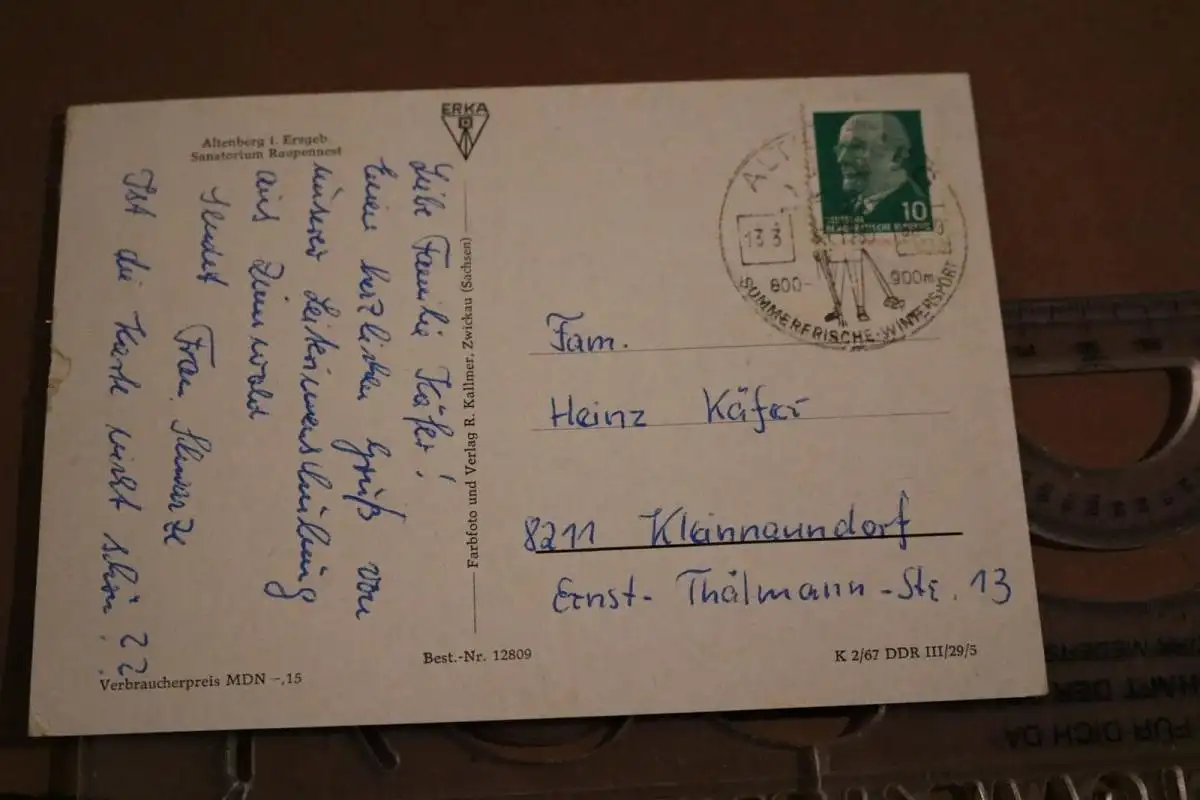 Altenberg i. Erzgeb.
Sanatorium Raupennest
ERKA
Liebe Familie Käfer!
Einen herzlichen Gruß von
unserer
aus Zinnwald
sendet
Frau Schwarze
Ist die Karte nicht schön??
Farbfoto und Verlag R. Kallmer, Zwickau (Sachsen)
Verbraucherpreis MDN -,15
Best.-Nr. 12809
10
DEUTSCHE
DEMOKRATISCHE REPUBLIK
ALT
13.3
800-
900m
SUMMERFRISCHE·WINTERSPORT
Fam.
Heinz Käfer
8211 Kleinnaundorf
Ernst-Thälmann-Str. 13
K 2/67 DDR III/29/5
FÜR DICH DA